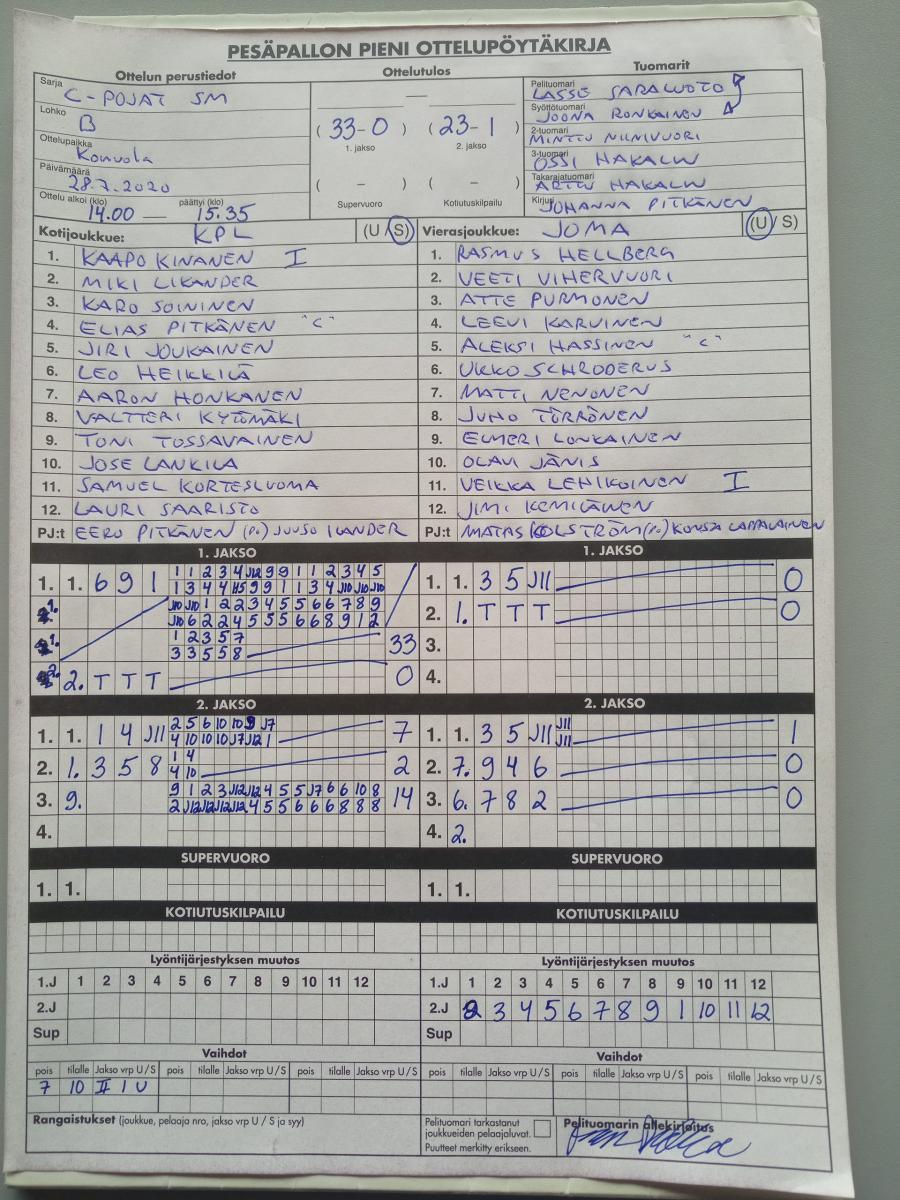 PESÄPALLON PIENI OTTELUPÖYTÄKIRJA
Ottelun perustiedot Ottelutulos Tuomarit
Sarja C-POJAT SM
Lohko B
Ottelupaikka Kouvola
Päivämäärä 28.7.2020
Ottelu alkoi (klo) päättyi (klo)
14.00 — 15.35
—
( 33-0 ) ( 23-1 )
1. jakso 2. jakso
( - ) ( - )
Supervuoro Kotiutuskilpailu
Pelituomari LASSE SARALUOTO
Syöttötuomari JOONA RONKAINEN
2-tuomari MINTTU NIINIVUORI
3-tuomari OSSI HAKALIN
Takarajatuomari ARTTU HAKALIN
Kirjuri JOHANNA PITKÄNEN
Kotijoukkue: KPL (U / S)
1. KAAPO KINANEN I
2. MIKI LIKANDER
3. KARO SOININEN
4. ELIAS PITKÄNEN "C"
5. JIRI JOUKAINEN
6. LEO HEIKKILÄ
7. AARON HONKANEN
8. VALTTERI KYTÖMÄKI
9. TONI TOSSAVAINEN
10. JOSE LANKILA
11. SAMUEL KORTESLUOMA
12. LAURI SAARISTO
PJ:t EERO PITKÄNEN (P.) JUUSO ILANDER
Vierasjoukkue: JOMA (U / S)
1. RASMUS HELLBERG
2. VEETI VIHERVUORI
3. ATTE PURMONEN
4. LEEVI KARVINEN
5. ALEKSI HASSINEN "C"
6. UKKO SCHRODERUS
7. MATTI NENONEN
8. JUHO TÖRRÖNEN
9. ELMERI LONKAINEN
10. OLAVI JÄNIS
11. VEIKKA LEHIKOINEN I
12. JIMI KEMILÄINEN
PJ:t MATIAS HOLSTRÖM (P.) LAPPALAINEN
1. JAKSO
1. 1. 6 9 1 1 1 2 3 4 J12 9 9 1 1 2 3 4 5
1 3 4 4 J15 9 9 1 1 3 4 J10 J10 J10
1. J10 J10 1 2 2 3 4 5 5 6 6 7 8 9
J10 6 2 2 4 5 5 5 6 6 8 9 1 2
1. 1 2 3 5 7
3 3 5 5 8 33
2. 2. T T T 0
1. JAKSO
1. 1. 3 5 J11 0
2. 1. T T T 0
3.
4.
2. JAKSO
1. 1. 1 4 J11 2 5 6 10 10 9 J7 7
4 10 10 10 J7 J12 1
2. 1. 3 5 8 1 4 2
4 10
3. 9. 9 1 2 3 J12 J12 4 5 5 J7 6 6 10 8 14
2 J12 J12 J12 J12 4 5 5 6 6 6 8 8 8
4.
2. JAKSO
1. 1. 3 5 J11 J11 1
J11
2. 7. 9 4 6 0
3. 6. 7 8 2 0
4. 2.
SUPERVUORO SUPERVUORO
1. 1. 1. 1.
KOTIUTUSKILPAILU KOTIUTUSKILPAILU
Lyöntijärjestyksen muutos
1.J 1 2 3 4 5 6 7 8 9 10 11 12
2.J
Sup
Lyöntijärjestyksen muutos
1.J 1 2 3 4 5 6 7 8 9 10 11 12
2.J 2 3 4 5 6 7 8 9 1 10 11 12
Sup
Vaihdot Vaihdot
pois tilalle Jakso vrp U / S pois tilalle Jakso vrp U / S pois tilalle Jakso vrp U / S pois tilalle Jakso vrp U / S pois tilalle Jakso vrp U / S pois tilalle Jakso vrp U / S
7 10 II 1 U
Rangaistukset (joukkue, pelaaja nro, jakso vrp U / S ja syy)
Pelituomari tarkastanut
joukkueiden pelaajaluvat.
Puutteet merkitty erikseen.
Pelituomarin allekirjoitus